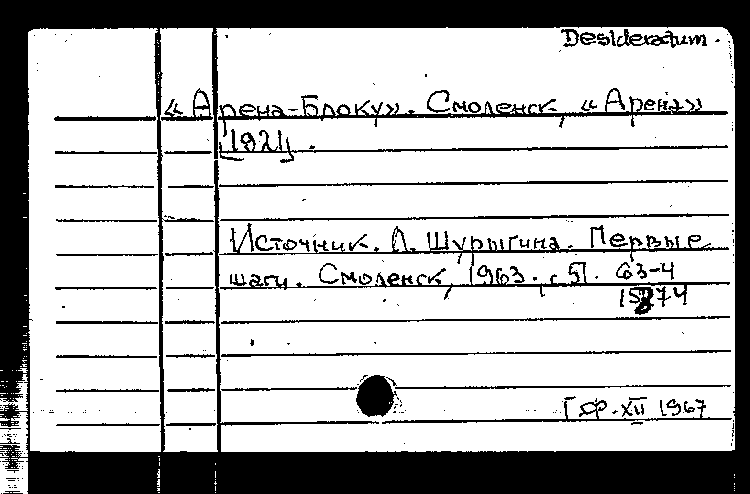 Desideratum.
«Арена-Блоку». Смоленск, «Арена»
[1921].
Источник. Л. Шурыгина. Первые
шаги. Смоленск, 1963. с. 51. 63-4
XII 1967